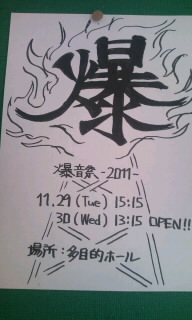 爆
爆音祭 -2011-
11.29 (Tue) 15:15
30 (Wed) 13:15 OPEN!!
場所：多目的ホール